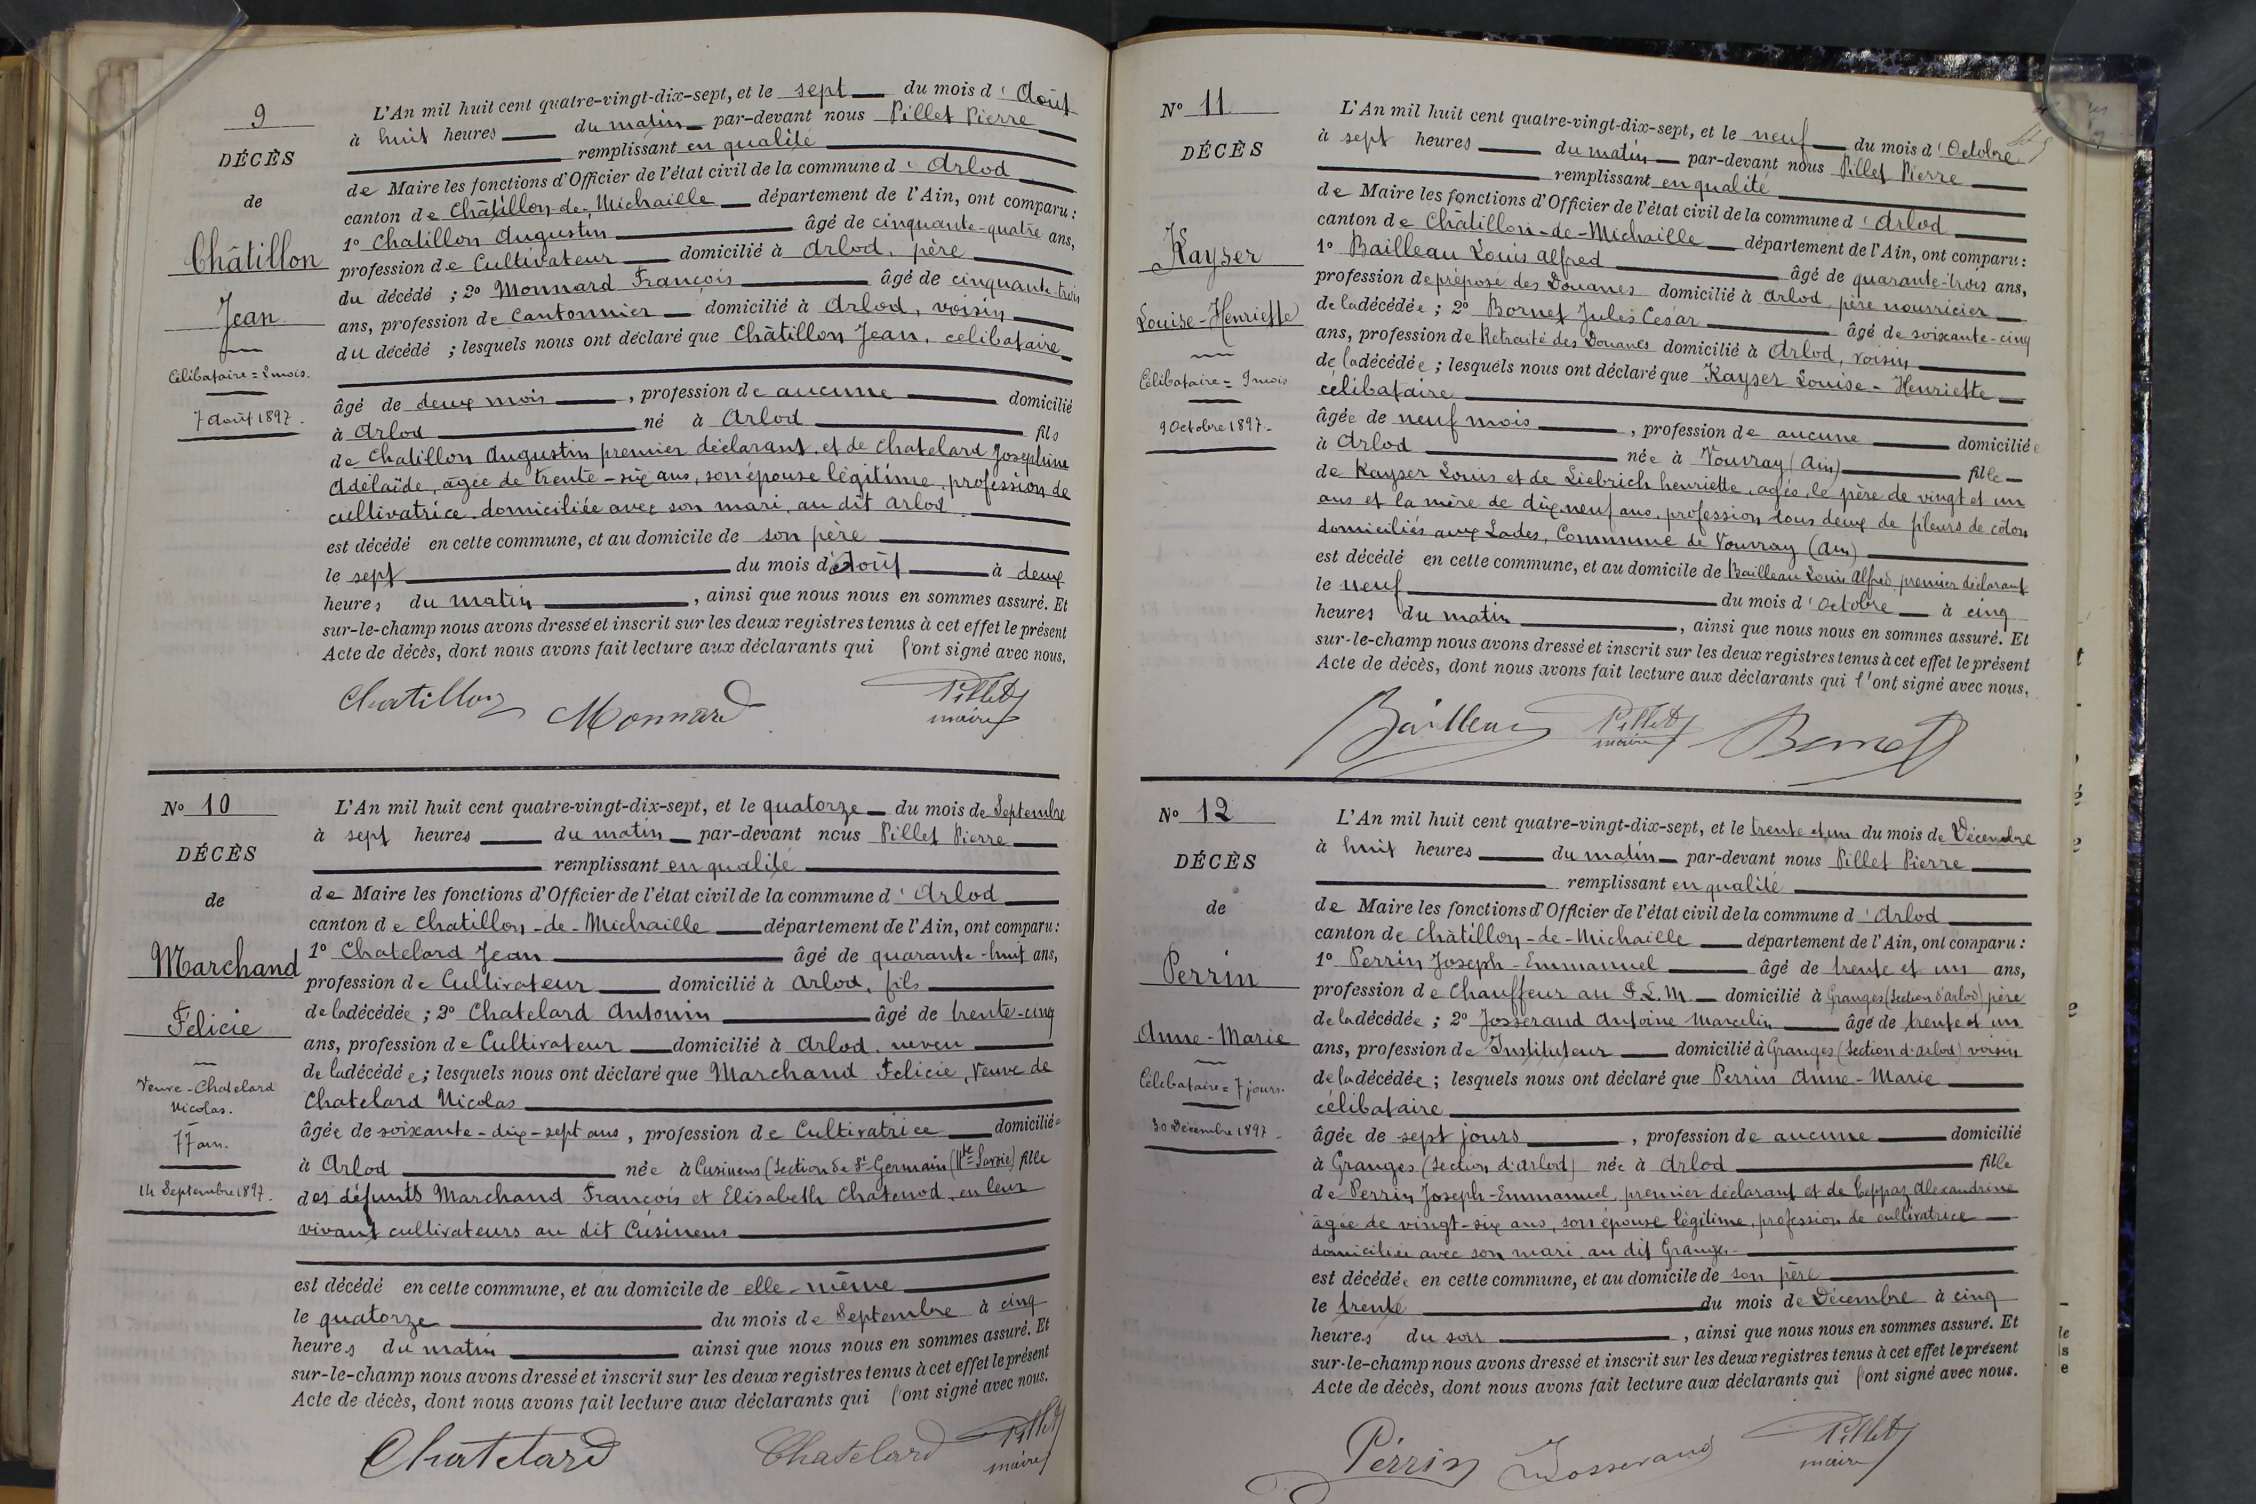 9
DÉCÈS
de
Châtillon
Jean
Célibataire = 2 mois.
7 août 1897.
L'An mil huit cent quatre-vingt-dix-sept, et le sept du mois d'Août
à huit heures du matin par-devant nous Pillet Pierre
remplissant en qualité
de Maire les fonctions d'Officier de l'état civil de la commune d'Arlod
canton de Châtillon-de-Michaille département de l'Ain, ont comparu :
1° Chatillon Augustin âgé de cinquante-quatre ans,
profession de Cultivateur domicilié à Arlod, père
du décédé ; 2° Monnard François âgé de cinquante-trois
ans, profession de Cantonnier domicilié à Arlod, voisin
du décédé ; lesquels nous ont déclaré que Châtillon Jean, célibataire
âgé de deux mois, profession de aucune domicilié
à Arlod né à Arlod fils
de Chatillon Augustin premier déclarant, et de Chatelard Joséphine
Adélaïde, âgée de trente-six ans, son épouse légitime, profession de
cultivatrice, domiciliée avec son mari, au dit Arlod
est décédé en cette commune, et au domicile de son père
le sept du mois d'Août à deux
heures du matin, ainsi que nous nous en sommes assuré. Et
sur-le-champ nous avons dressé et inscrit sur les deux registres tenus à cet effet le présent
Acte de décès, dont nous avons fait lecture aux déclarants qui l'ont signé avec nous.
Chatillon Monnard Pillet
maire
N° 10
DÉCÈS
de
Marchand
Félicie
Veuve-Chatelard
Nicolas.
77 ans.
14 Septembre 1897.
L'An mil huit cent quatre-vingt-dix-sept, et le quatorze du mois de Septembre
à sept heures du matin par-devant nous Pillet Pierre
remplissant en qualité
de Maire les fonctions d'Officier de l'état civil de la commune d'Arlod
canton de Chatillon-de-Michaille département de l'Ain, ont comparu :
1° Chatelard Jean âgé de quarante-huit ans,
profession de Cultivateur domicilié à Arlod, fils
de la décédée ; 2° Chatelard Antonin âgé de trente-cinq
ans, profession de Cultivateur domicilié à Arlod, neveu
de la décédée ; lesquels nous ont déclaré que Marchand Félicie, Veuve de
Chatelard Nicolas
âgée de soixante-dix-sept ans, profession de Cultivatrice domiciliée
à Arlod née à Cusinens (Section de St Germain (Hte Savoie) fille
des défunts Marchand François et Elisabeth Chatenod, en leur
vivant cultivateurs au dit Cusinens
est décédé en cette commune, et au domicile de elle-même
le quatorze du mois de Septembre à cinq
heures du matin ainsi que nous nous en sommes assuré. Et
sur-le-champ nous avons dressé et inscrit sur les deux registres tenus à cet effet le présent
Acte de décès, dont nous avons fait lecture aux déclarants qui l'ont signé avec nous.
Chatelard Chatelard Pillet
maire
N° 11
DÉCÈS
Kayser
Louise-Henriette
Célibataire = 9 mois
9 Octobre 1897.
L'An mil huit cent quatre-vingt-dix-sept, et le neuf du mois d'Octobre
à sept heures du matin par-devant nous Pillet Pierre
remplissant en qualité
de Maire les fonctions d'Officier de l'état civil de la commune d'Arlod
canton de Châtillon-de-Michaille département de l'Ain, ont comparu :
1° Bailleau Louis Alfred âgé de quarante-trois ans,
profession de préposé des Douanes domicilié à Arlod, père nourricier
de la décédée ; 2° Bornet Jules César âgé de soixante-cinq
ans, profession de Retraité des Douanes domicilié à Arlod, voisin
de la décédée ; lesquels nous ont déclaré que Kayser Louise-Henriette
célibataire
âgée de neuf mois, profession de aucune domiciliée
à Arlod née à Vouvray (Ain) fille
de Kayser Louis et de Liebrich henriette, agés, le père de vingt et un
ans et la mère de dix neuf ans, profession tous deux de fileurs de coton
domiciliés aux Lades, Commune de Vouvray (Ain)
est décédé en cette commune, et au domicile de Bailleau Louis Alfred premier déclarant
le neuf du mois d'Octobre à cinq
heures du matin, ainsi que nous nous en sommes assuré. Et
sur-le-champ nous avons dressé et inscrit sur les deux registres tenus à cet effet le présent
Acte de décès, dont nous avons fait lecture aux déclarants qui l'ont signé avec nous.
Bailleau Pillet Bornet
maire
N° 12
DÉCÈS
de
Perrin
Anne-Marie
Célibataire = 7 jours.
30 Décembre 1897.
L'An mil huit cent quatre-vingt-dix-sept, et le trente et un du mois de Décembre
à huit heures du matin par-devant nous Pillet Pierre
remplissant en qualité
de Maire les fonctions d'Officier de l'état civil de la commune d'Arlod
canton de Châtillon-de-Michaille département de l'Ain, ont comparu :
1° Perrin Joseph-Emmanuel âgé de trente et un ans,
profession de Chauffeur au P.L.M. domicilié à Granges (Section d'Arlod) père
de la décédée ; 2° Josserand Antoine Marcelin âgé de trente et un
ans, profession de Instituteur domicilié à Granges (Section d'Arlod) voisin
de la décédée ; lesquels nous ont déclaré que Perrin Anne-Marie
célibataire
âgée de sept jours, profession de aucune domicilié
à Granges (Section d'Arlod) née à Arlod fille
de Perrin Joseph-Emmanuel, premier déclarant et de Ceppaz Alexandrine
âgée de vingt-six ans, son épouse légitime, profession de cultivatrice
domiciliée avec son mari, au dit Granges
est décédée en cette commune, et au domicile de son père
le trente du mois de Décembre à cinq
heures du soir, ainsi que nous nous en sommes assuré. Et
sur-le-champ nous avons dressé et inscrit sur les deux registres tenus à cet effet le présent
Acte de décès, dont nous avons fait lecture aux déclarants qui l'ont signé avec nous.
Perrin Josserand Pillet
maire